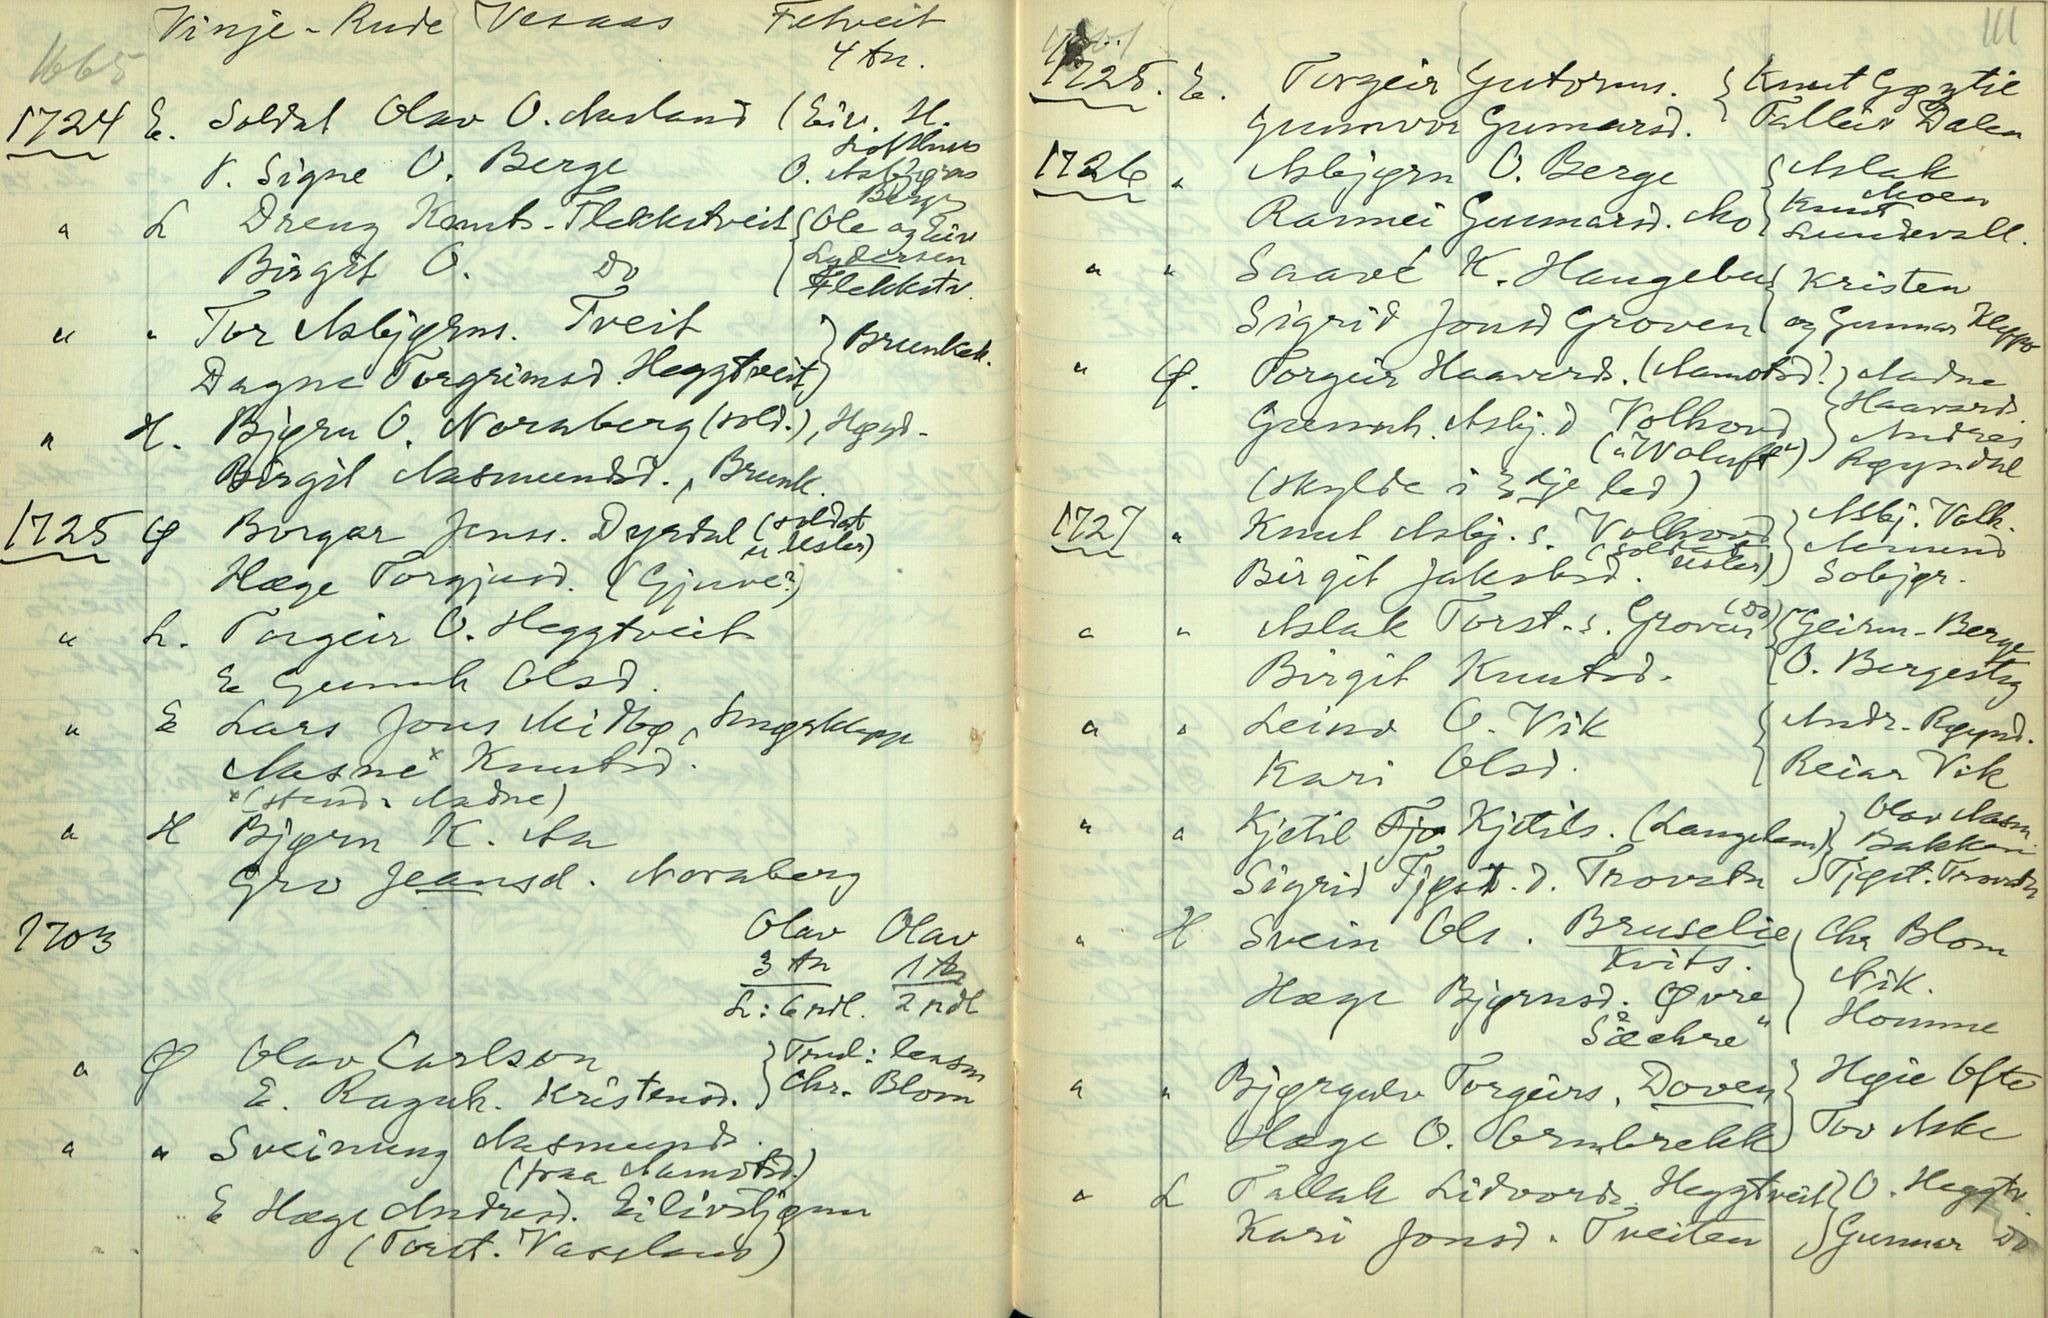 Vinje - Rude Vesaas Felveit
4 An.
1665
1724 E. Soldat Olav O. Aasland (Eiv. H.
Lofthus
P. Signe O. Berge O. Asbjørns
Berge
" L Dreng Knuts. Flekkstveit { Ole og Eiv
Birgit O. Do Lydersen
Flekkstv.
" " Tor Asbjørns. Tveit } Brunkeb.
Dagne Torgrimsd. Heggtveit
" H. Bjørn O. Nordberg (sold.), Høyd-
Birgit Aasmundsd. , Brunk.
1725 Ø Borgar Jons. Dyrdal (soldat
u. Uster)
Hæge Torgjusd. (Gjuve?)
" L. Torgeir O. Heggtveit
E Gunnh Olsd.
" E Lars Jons Midbø, Smørklepp
Aasne x Knutsd.
x (stend. Aadne)
" H Bjørn K. Aa
Gro Jeansd. Nornberg
1703 Olav Olav
3 An 1 An
L: 6 rdl. 2 rdl
" Ø Olav Carlson } Trul: lensm
E. Ragnh. Kristensd. Chr. Blom
" " Sveinung Aasmunds.
(fraa Aamotsd.)
E Hæge Andresd. Eilivstjønn
(Torst. Vaasland)
111
1725. E. Torgeir Gutorms. { Knut Gøytil
Gunnvor Gunnarsd. Talleiv Dalen
1726 " Asbjørn O. Berge { Aslak
Moen
Rannei Gunnarsd. Mo Knut
Lundevall.
" " Saavé K. Haugebu { Kristen
Sigrid Jonsd Groven og Gunnar Kleppo
" Ø. Torgeir Haavards. (Aamotsd?) } Aadne
Haavards.
Gunnh. Asbj.d Volhovd Andres
("Woluft") Røyndal
(skylde i 3dje led)
1727 " Knut Asbj. s. Volhovd } Asbj. Volh.
(soldat Aamund
Birgit Jakobsd. Uster) Sobjør.
" " Aslak Torst. s. Groven (Do) { Geirm. Berge
Birgit Knutsd. O. Bergestig
" " Leiv O. Vik { Andr. Røynd.
Kari Olsd. Reiar Vik
" " Kjetil Tjo Kjetils. (Langeland) } Olav Aasm
Bakken
Sigrid Tjøst. d. Trovatn Tjøst. Trovatn
" H Svein Ols. Bruselie { Chr Blom
Kvits. Nik.
Hæge Bjørnsd. Øvre Homme
Sæchre"
" " Bjørgulv Torgeirs. Doven } Høie Ofte
Hæge O. Ormbrekk Tov Aske
" L Tallak Lidvords. Heggtveit } O. Heggtv.
Kari Jonsd. Tveiten Gunnar Do